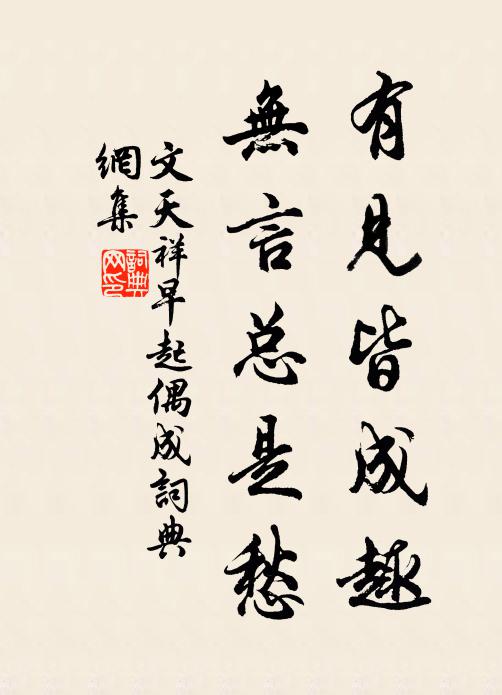 有見皆成趣
無言总是愁
文天祥早起偶成詞典
網集
詞典
网印